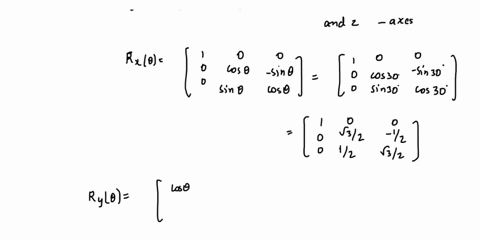 and z - axes
Rx(θ) = [ 1 0 0 ; 0 cosθ -sinθ ; 0 sinθ cosθ ] = [ 1 0 0 ; 0 cos30 -sin30° ; 0 sin30° cos30° ]
= [ 1 0 0 ; 0 √3/2 -1/2 ; 0 1/2 √3/2 ]
Ry(θ) = [ cosθ